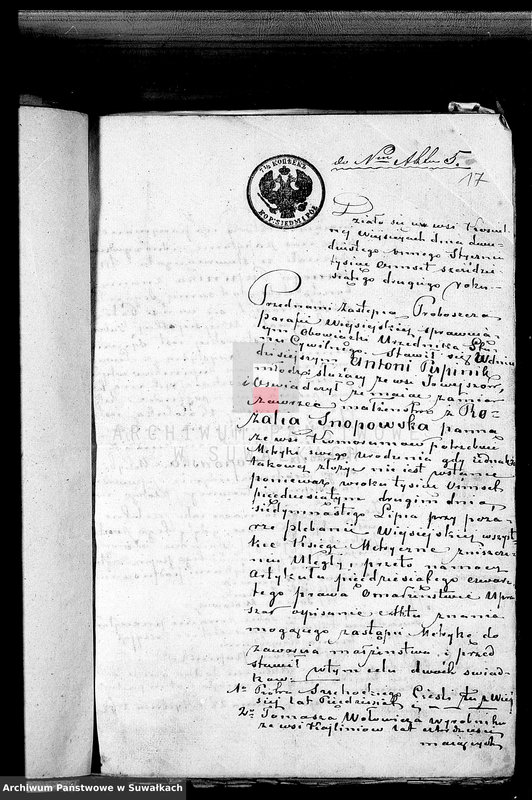 do Nru Aktu 5.
17
7½ KOPIEJKI
KOP. SIEDM I PÓŁ
Działo się we wsi
Wiejsiejach dnia dwu-
dziestego Stycznia
tysiąc ośmset sześćdzie-
siątego drugiego roku.
Przednami Zastępcą Proboszcza
Parafii Wiejsiejskiej sprawują-
cym Obowiązki Urzędnika Sta-
nu Cywilnego Stawił się w dniu
dzisiejszym Antoni Pupinik
młodz: służący ze wsi
i Oświadczył że mając zamiar
zawrzeć małżeństwo z Ro-
zalią Snopowską panną
ze wsi potrzebuie
Metryki swego urodzenia gdy iednak
takowey złożyć nie iest wstanie
ponieważ w roku tysiąc ośmset
pięćdziesiątym drugim dnia
siedymnastego Lipca przy poża-
rze plebanii Wiejsiejskiej wszyst-
kie Księgi Metryczne zniszcze-
niu Uległy, przeto na mocy
Artykułu pięćdziesiątego czwar-
tego prawa o małżeństwie Upra-
sza o spisanie Aktu znania
mogącego zastąpić Metrykę do
zawarcia małżeństwa i przed
stawił w tym celu dwóch świad-
ków:
1o Piotra Cieśli w Wiej-
siej lat Pięćdziesiąt
2o Tomasza Wołowicza wyrobnika
ze wsi lat
mających
ARCHIWUM PAŃSTWOWE
W SUWAŁKACH
Archiwum Państwowe w Suwałkach